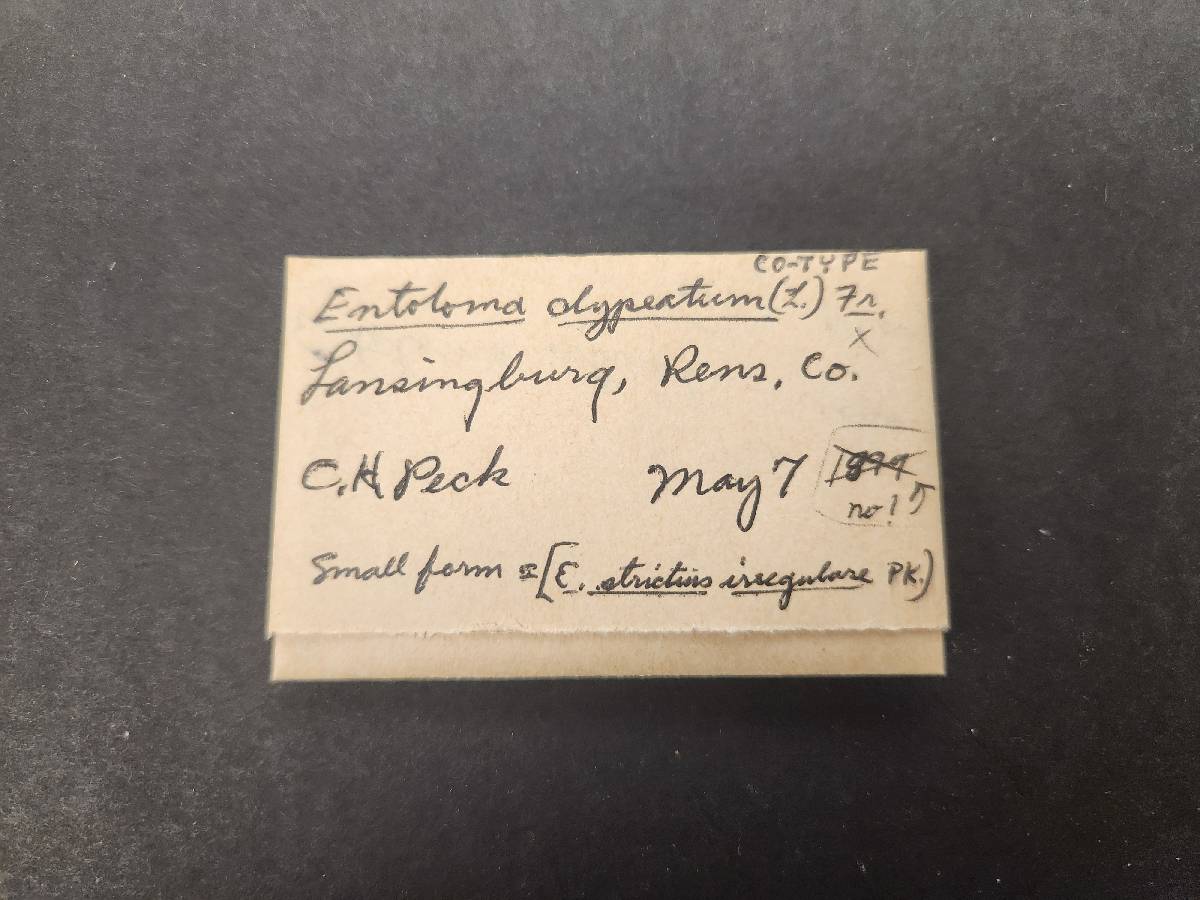 CO-TYPE
Entoloma clypeatum (L.) Fr.
X
Lansingburg, Rens. Co.
C. H. Peck May 7
no!
Small form = [E. strictius irregulare PK.)